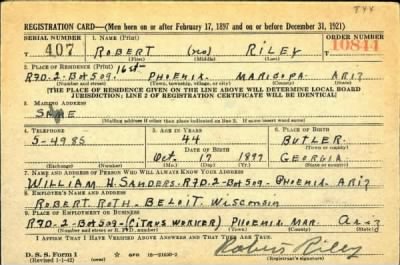 T44
REGISTRATION CARD—(Men born on or after February 17, 1897 and on or before December 31, 1921)
SERIAL NUMBER 1. NAME (Print) ORDER NUMBER
407 ROBERT (NO) RILEY 10844
(First) (Middle) (Last)
2. PLACE OF RESIDENCE (Print) 16 St-
RFD-2-Bx509- PHOENIX MARICOPA ARIZ
(Number and street) (Town, township, village, or city) (County) (State)
[THE PLACE OF RESIDENCE GIVEN ON THE LINE ABOVE WILL DETERMINE LOCAL BOARD
JURISDICTION; LINE 2 OF REGISTRATION CERTIFICATE WILL BE IDENTICAL]
3. MAILING ADDRESS
SAME
[Mailing address if other than place indicated on line 2. If same insert word same]
4. TELEPHONE 5. AGE IN YEARS 6. PLACE OF BIRTH
5-4985 44 BUTLER
DATE OF BIRTH (Town or county)
Oct 17 1897 GEORGIA
(Exchange) (Number) (Mo.) (Day) (Yr.) (State or country)
7. NAME AND ADDRESS OF PERSON WHO WILL ALWAYS KNOW YOUR ADDRESS
WILLIAM H. SANDERS-RFD-2-Bx509-PHOENIX ARIZ
8. EMPLOYER'S NAME AND ADDRESS
ROBERT ROTH-BELOIT WISCONSIN
9. PLACE OF EMPLOYMENT OR BUSINESS
RFD-2-Bx509-(CITRUS WORKER) PHOENIX MAR. ARIZ
(Number and street or R. F. D. number) (Town) (County) (State)
I AFFIRM THAT I HAVE VERIFIED ABOVE ANSWERS AND THAT THEY ARE TRUE.
D. S. S. Form 1
(Revised 1-1-42) (over) Robert Riley